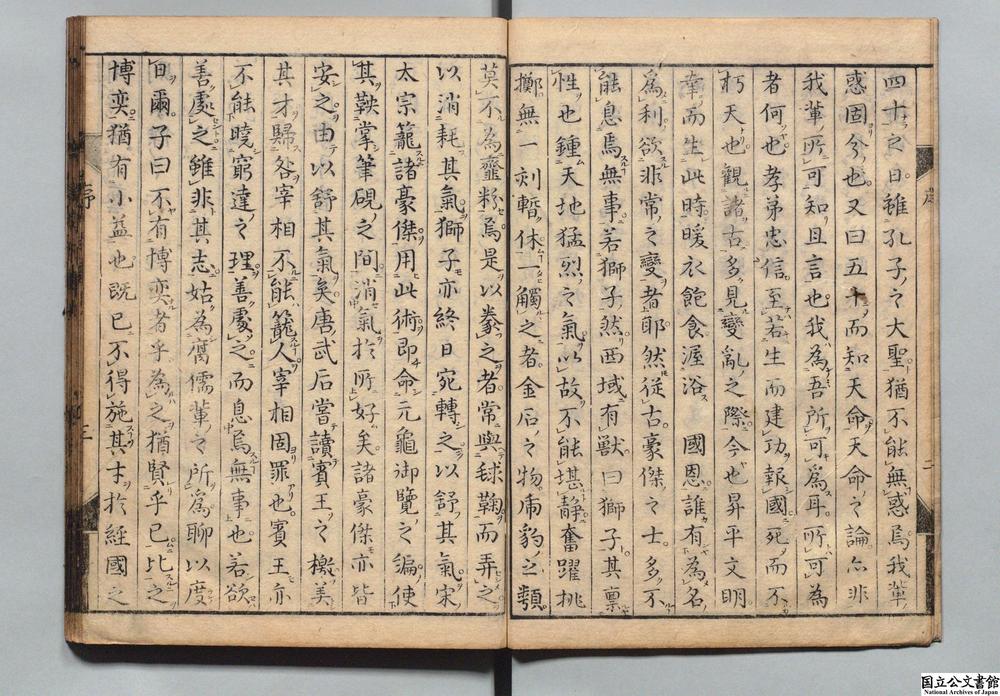 四十之日雖孔子之大聖猶不能無惑焉我輩
惑固今也又曰五十而知天命天命之論亦非
我輩所可知且言也我為吾所可為耳所可為
者何也孝弟忠信至若生而建功報國死而不
朽天也觀諸古多見變亂之際今也昇平文明
幸而生此時暖衣飽食渥浴　國恩誰有為名
為利欲非常之變者耶然從古豪傑之士多不
能息焉無事若獅子然西域有獸曰獅子其稟
性也鍾天地猛烈之氣以故不能堪靜奮躍挑
擲無一刻暫休一觸之者金石之物虎豹之類
莫不為齏粉焉是以豢之者常與毬鞠而弄之
以消耗其氣獅子亦終日宛轉之以舒其氣宋
太宗籠諸豪傑用此術即命元龜御覽之編使
其鞅掌筆硯之間消氣於所好矣諸豪傑亦皆
安之由以舒其氣矣唐武后嘗讀賓王之檄美
其才歸咎宰相不能籠人宰相固罪也賓王亦
不能曉窮達之理善處之而息焉無事也若欲
善處之雖非其志姑為腐儒輩之所為聊以度
日爾子曰不有博奕者乎為之猶賢乎已比之
博奕猶有小益也既已不得施其才於經國之
序
二
序
三
国立公文書館
National Archives of Japan